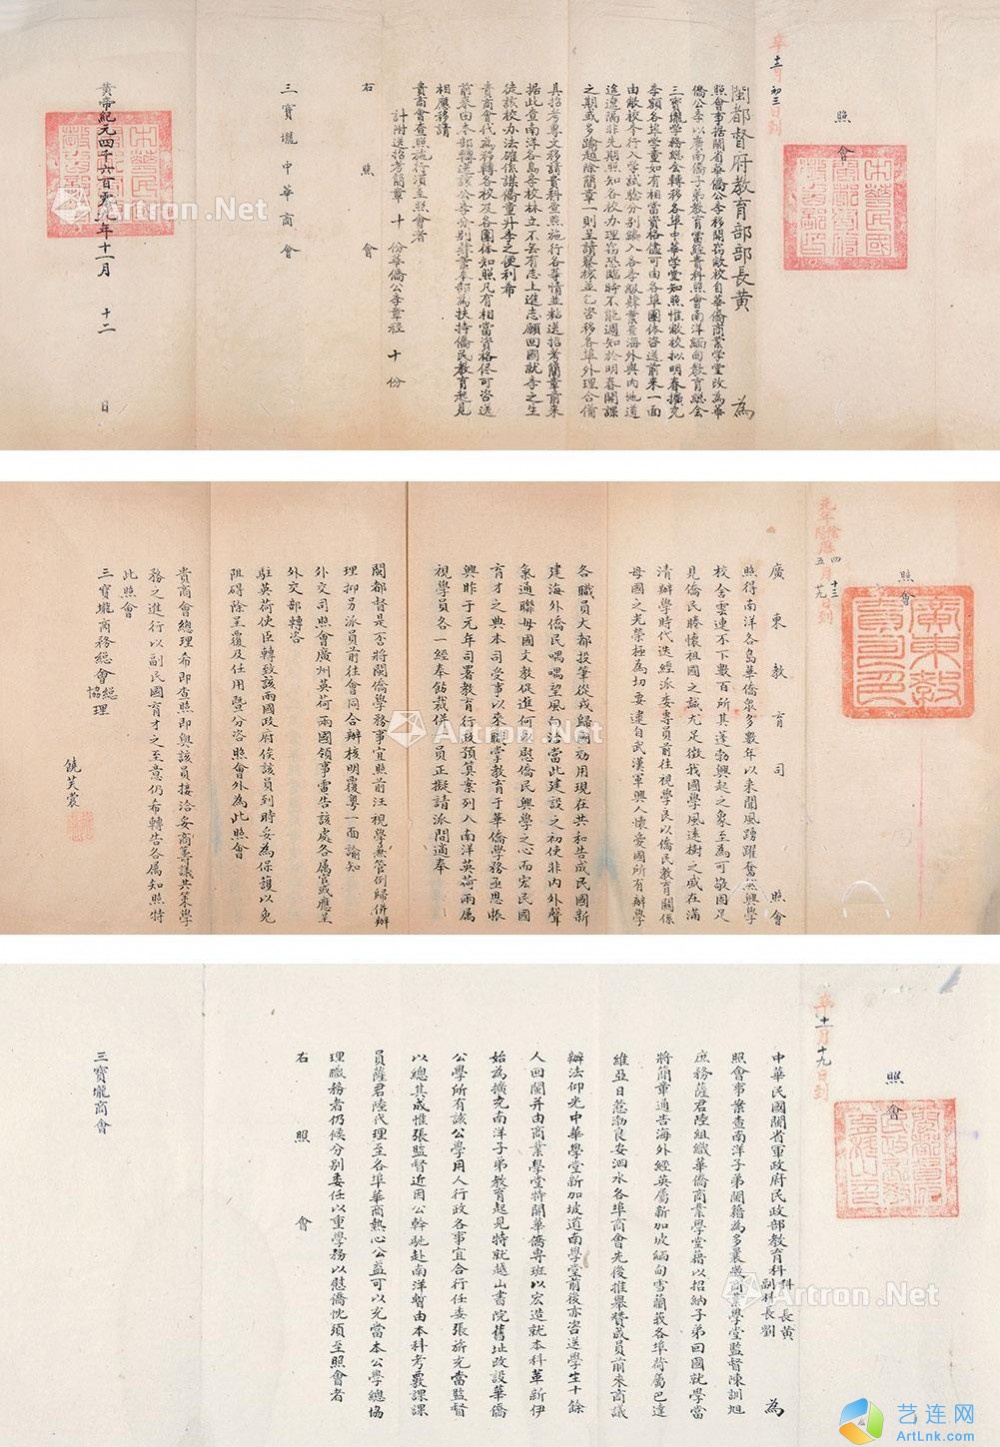 辛
十一月初三日到
照
會
閩都督府教育部部長黃 為
照會事據閩省華僑公學移開前敝校自華僑商業學堂改為華
僑公學以廣南僑子弟教育當經貴科照會南洋緬甸教育總會
三寶壠學務總會轉移各埠中華學堂知照惟敝校擬明春擴充
學額各埠學童如有相當資格儘可由各埠團体咨送前來一面
由敝校令行入學試驗分別歸入各學級肄業
之期或多踰越除簡章一則呈請
具招考專文移請貴科查照施行各等情並粘送招考簡章前來
据此查南洋各島學校林立不乏有志上進志願回國就學之生
徒該校办法確係謀僑童升學之便利希
貴商會代為移轉各校及各團体知照凡有相當資格俱可咨送
前來由本部轉送該公學分別肄業本部為扶持僑民教育起見
相應移請
貴商會查照施行須至照會者
計附送招考簡章 十 份華僑公學章程 十 份
右 照 會
三 寶 壠 中 華 商 會
黃帝紀元四千六百零九年十一月 十二 日
中華民國
元年陰曆
四 十三
五 廿九日到
照
會
廣東教育司
廣 東 教 育 司 照會
照得南洋各島華僑衆多數年以來聞風踴躍奮然興學
校舍雲連不下數百所其蓬勃興起之象至為可敬固足
見僑民睠懷祖國之誠尤足徵我國學風遠樹之盛在滿
清辦學時代迭經派委專員前往視學良以僑民教育關係
母國之光榮極為切要逮自武漢軍興人懷愛國所有辦學
各職員大都投筆從戎歸國効用現在共和告成民國新
建海外僑民喁喁望風向治當此建設之初使非內外聲
氣通聯母國文教從進何以慰僑民興學之心而宏民國
育才之典本司受事以來職掌教育于華僑學務亟思恢
興昨于元年司署教育行政預算案列入南洋英荷兩屬
視學員各一經奉飭裁併一員正擬請派間適奉
閩都督是否將閩僑學務事宜照前汪視學無管例歸併辦
理抑另派員前往會同合辦核明覆粵一面諭知
外交司照會廣州英荷兩國領事電告該處各屬官或應呈
外交部轉咨
駐英荷使臣轉致該兩國政府俟該員到時妥為保護以免
阻碍除呈覆及任用暨分咨照會外為此照會
貴商會總理希即查照即與該員接洽妥商籌議共策學
務之進行以副民國育才之至意仍希轉告各屬知照特
此照會
三寶壠商務總會總協理
饒芙裳
辛
十一月十九日到
照
會
中華民國閩省軍政府民政部教育科科長黃副科長劉 為
照會事案查南洋子弟閩籍為多曩無商業學堂監督陳訓旭
庶務薩君陸組織華僑商業學堂藉以招納子弟回國就學當
將簡章通告海外經英屬新加坡緬甸雪蘭莪各埠荷屬巴達
維亞日惹泗水各埠商會先後推舉贊成員前來商議
辦法仰光中華學堂新加坡道南學堂前後亦咨送學生十餘
人回閩并由商業學堂特開華僑專班以宏造就本科革新伊
始為擴充南洋子弟教育起見特就越山書院舊址改設華僑
公學所有該公學用人行政各事宜合行任委張旂充當監督
以總其成惟張監督近因公幹馳赴南洋暫由本科考覈課課
員薩君陸代理至各埠華商熱心公益可以充當本公學總協
理職務者仍候分別委任以重學務以慰僑忱須至照會者
右 照 會
三寶壠商會
Artron.Net
艺连网
ArtLnk.com